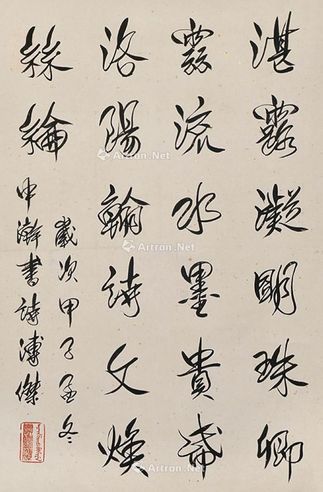 湛露凝明珠卿
雲流水墨貴
洛陽翰詩文煥
絲綸
歲次甲子孟冬
中澣書詩溥傑
Artron.Net